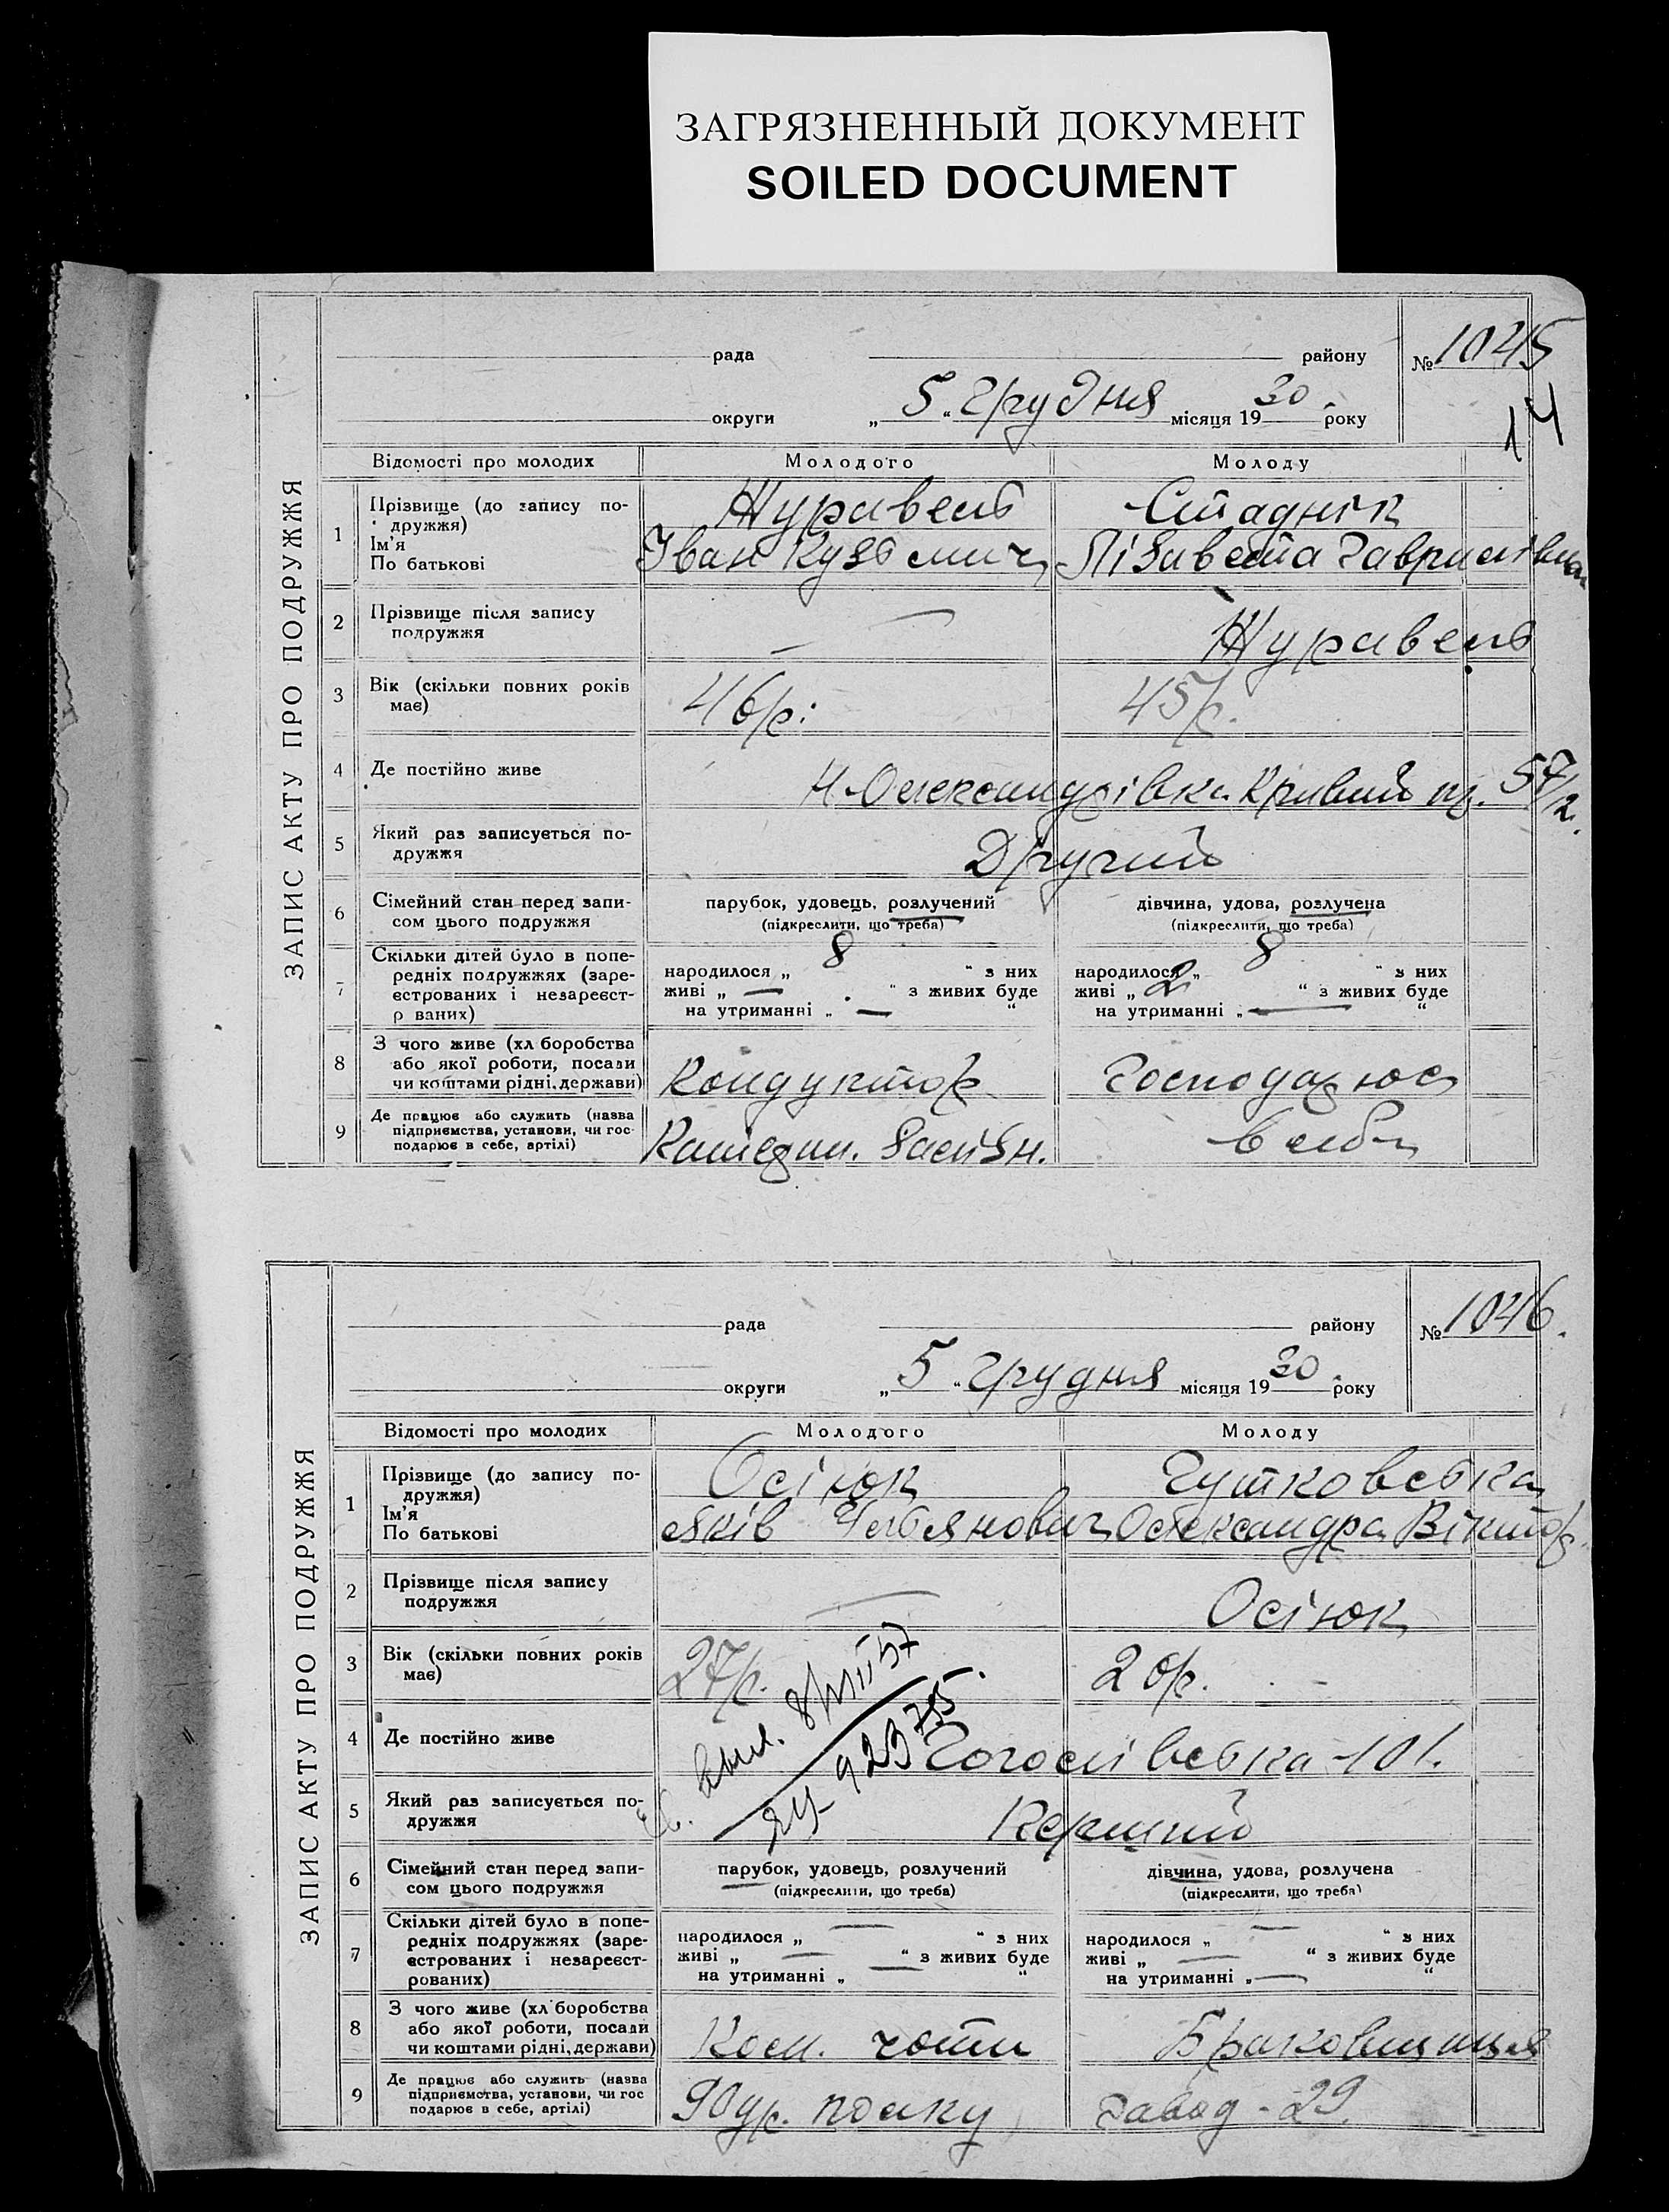 ЗАГРЯЗНЕННЫЙ ДОКУМЕНТ
SOILED DOCUMENT
ЗАПИС АКТУ ПРО ПОДРУЖЖЯ
рада району № 1045
14
округи „ 5 “ Грудня місяця 19 30 року
Відомості про молодих Молодого Молоду
1 Прізвище (до запису по- Журавель Стаднік
дружжя)
Ім'я Іван Кузьмич Лізавета Гаврилівна
По батькові
2 Прізвище після запису — Журавель
подружжя
3 Вік (скільки повних років 46р. 45р.
має)
4 Де постійно живе Н-Олександрівка Кривий пр. 57/2.
5 Який раз записується по- Другий
дружжя
6 Сімейний стан перед запи- парубок, удовець, розлучений дівчина, удова, розлучена
сом цього подружжя (підкреслити, що треба) (підкреслити, що треба)
7 Скільки дітей було в попе-
редніх подружжях (заре- народилося „ 8 “ з них народилося „ 8 “ з них
єстрованих і незареєст- живі „ — “ з живих буде живі „ 2 “ з живих буде
р ваних) на утриманні „ — “ на утриманні „ — “
8 З чого живе (хл боробства
або якої роботи, посади Кондуктор Господарює
чи коштами рідні, держави)
9 Де працює або служить (назва
підприємства, установи, чи гос- в себе
подарює в себе, артілі)
ЗАПИС АКТУ ПРО ПОДРУЖЖЯ
рада району № 1046.
округи „ 5 “ Грудня місяця 19 30 року
Відомості про молодих Молодого Молоду
1 Прізвище (до запису по- Осіюк Гутковська
дружжя)
Ім'я Яків Ульянович Олександра Віктор.
По батькові
2 Прізвище після запису — Осіюк
подружжя
3 Вік (скільки повних років 27р. 20р.
має)
4 Де постійно живе Гоголівська-101.
5 Який раз записується по- Перший
дружжя
6 Сімейний стан перед запи- парубок, удовець, розлучений дівчина, удова, розлучена
сом цього подружжя (підкреслити, що треба) (підкреслити, що треба)
7 Скільки дітей було в попе-
редніх подружжях (заре- народилося „ — “ з них народилося „ — “ з них
єстрованих і незареєст- живі „ — “ з живих буде живі „ — “ з живих буде
рованих) на утриманні „ — “ на утриманні „ — “
8 З чого живе (хл боробства
або якої роботи, посади Ком. чоти Браковщиця
чи коштами рідні, держави)
9 Де працює або служить (назва
підприємства, установи, чи гос полку завод - 29.
подарює в себе, артілі)